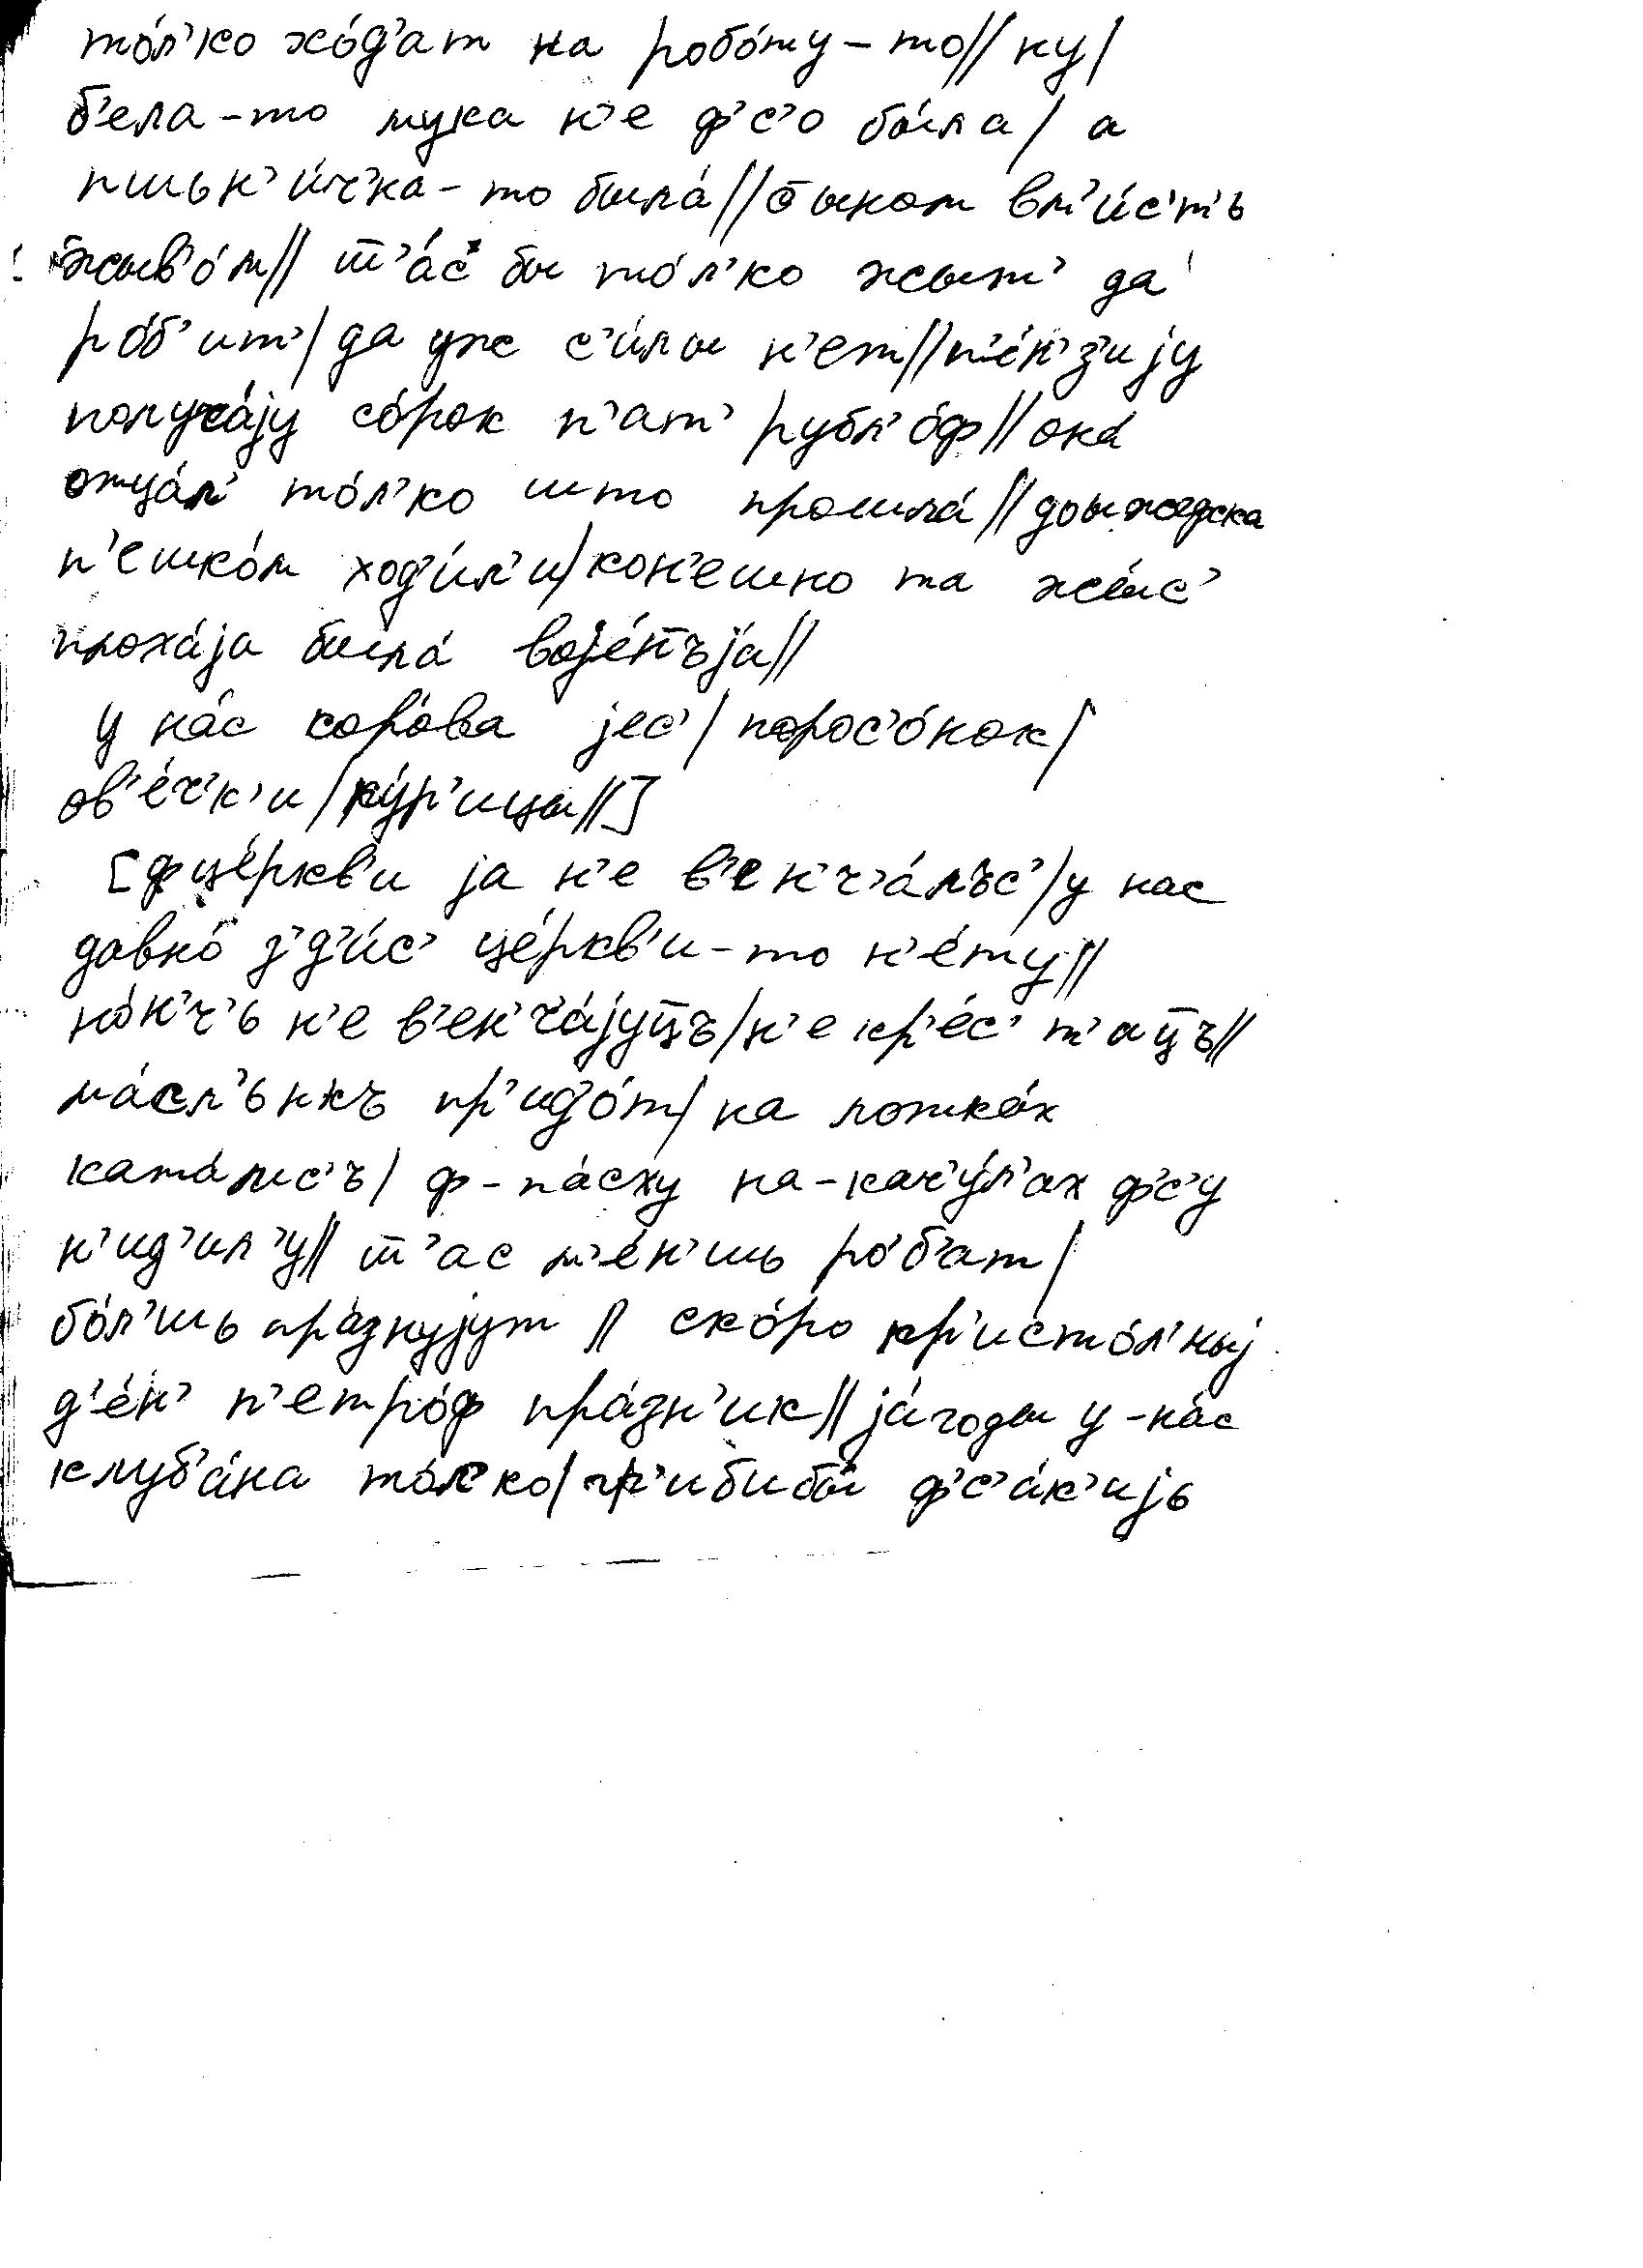 то́л’ко хо́д’ат на робо́ту – то // ну /
б’ела – то мука н’е ф’с’о бы́ла / а
пшьн’и́ч’ка – то была́ // сыном вм’и́с’т’ь
жыв’о́м // т̅’а́с бы то́л’ко жыт’ да
ро́б’ит’ / да уж с’и́лы н’ет // п’е́н’з’иjу
получа́jу со́рок п’ат’ рубл’о́ф // она́
отца́л’ то́л’ко што прошла́ //
п’ешко́м ход’и́л’и / кон’ешно та жы́с’
плоха́jа была́ воjе́н̅ъjа //
у на́с коро́ва jес’ / порос’о́нок /
ов’е́ч’к’и / ку́р’ицы // ]
[ фце́ркв’и jа н’е в’ен’ч’а́лъс’ / у нас
давно́ з’д’и́с’ це́ркв’и – то н’е́ту //
но́н’ч’ь н’е в’ен’ч’а́jуц̅ъ / н’е кр’е́с’т’ац̅ъ //
ма́сл’ьнкъ пр’ид’о́т / на лотка́х
ката́лис’ъ / ф – па́сху на – кач’у́л’ах ф’с’у
н’ид’ил’у // т̅’ас м’е́н’шь ро́б’ат /
бо́л’шь пра́знуjут // ско́ро кр’исто́л’ныj
д’е́н’ п’етро́ф пра́зн’ик // jа́годы у – на́с
клуб’а́на то́л’ко / гр’ибы ф’с’а́к’иjь